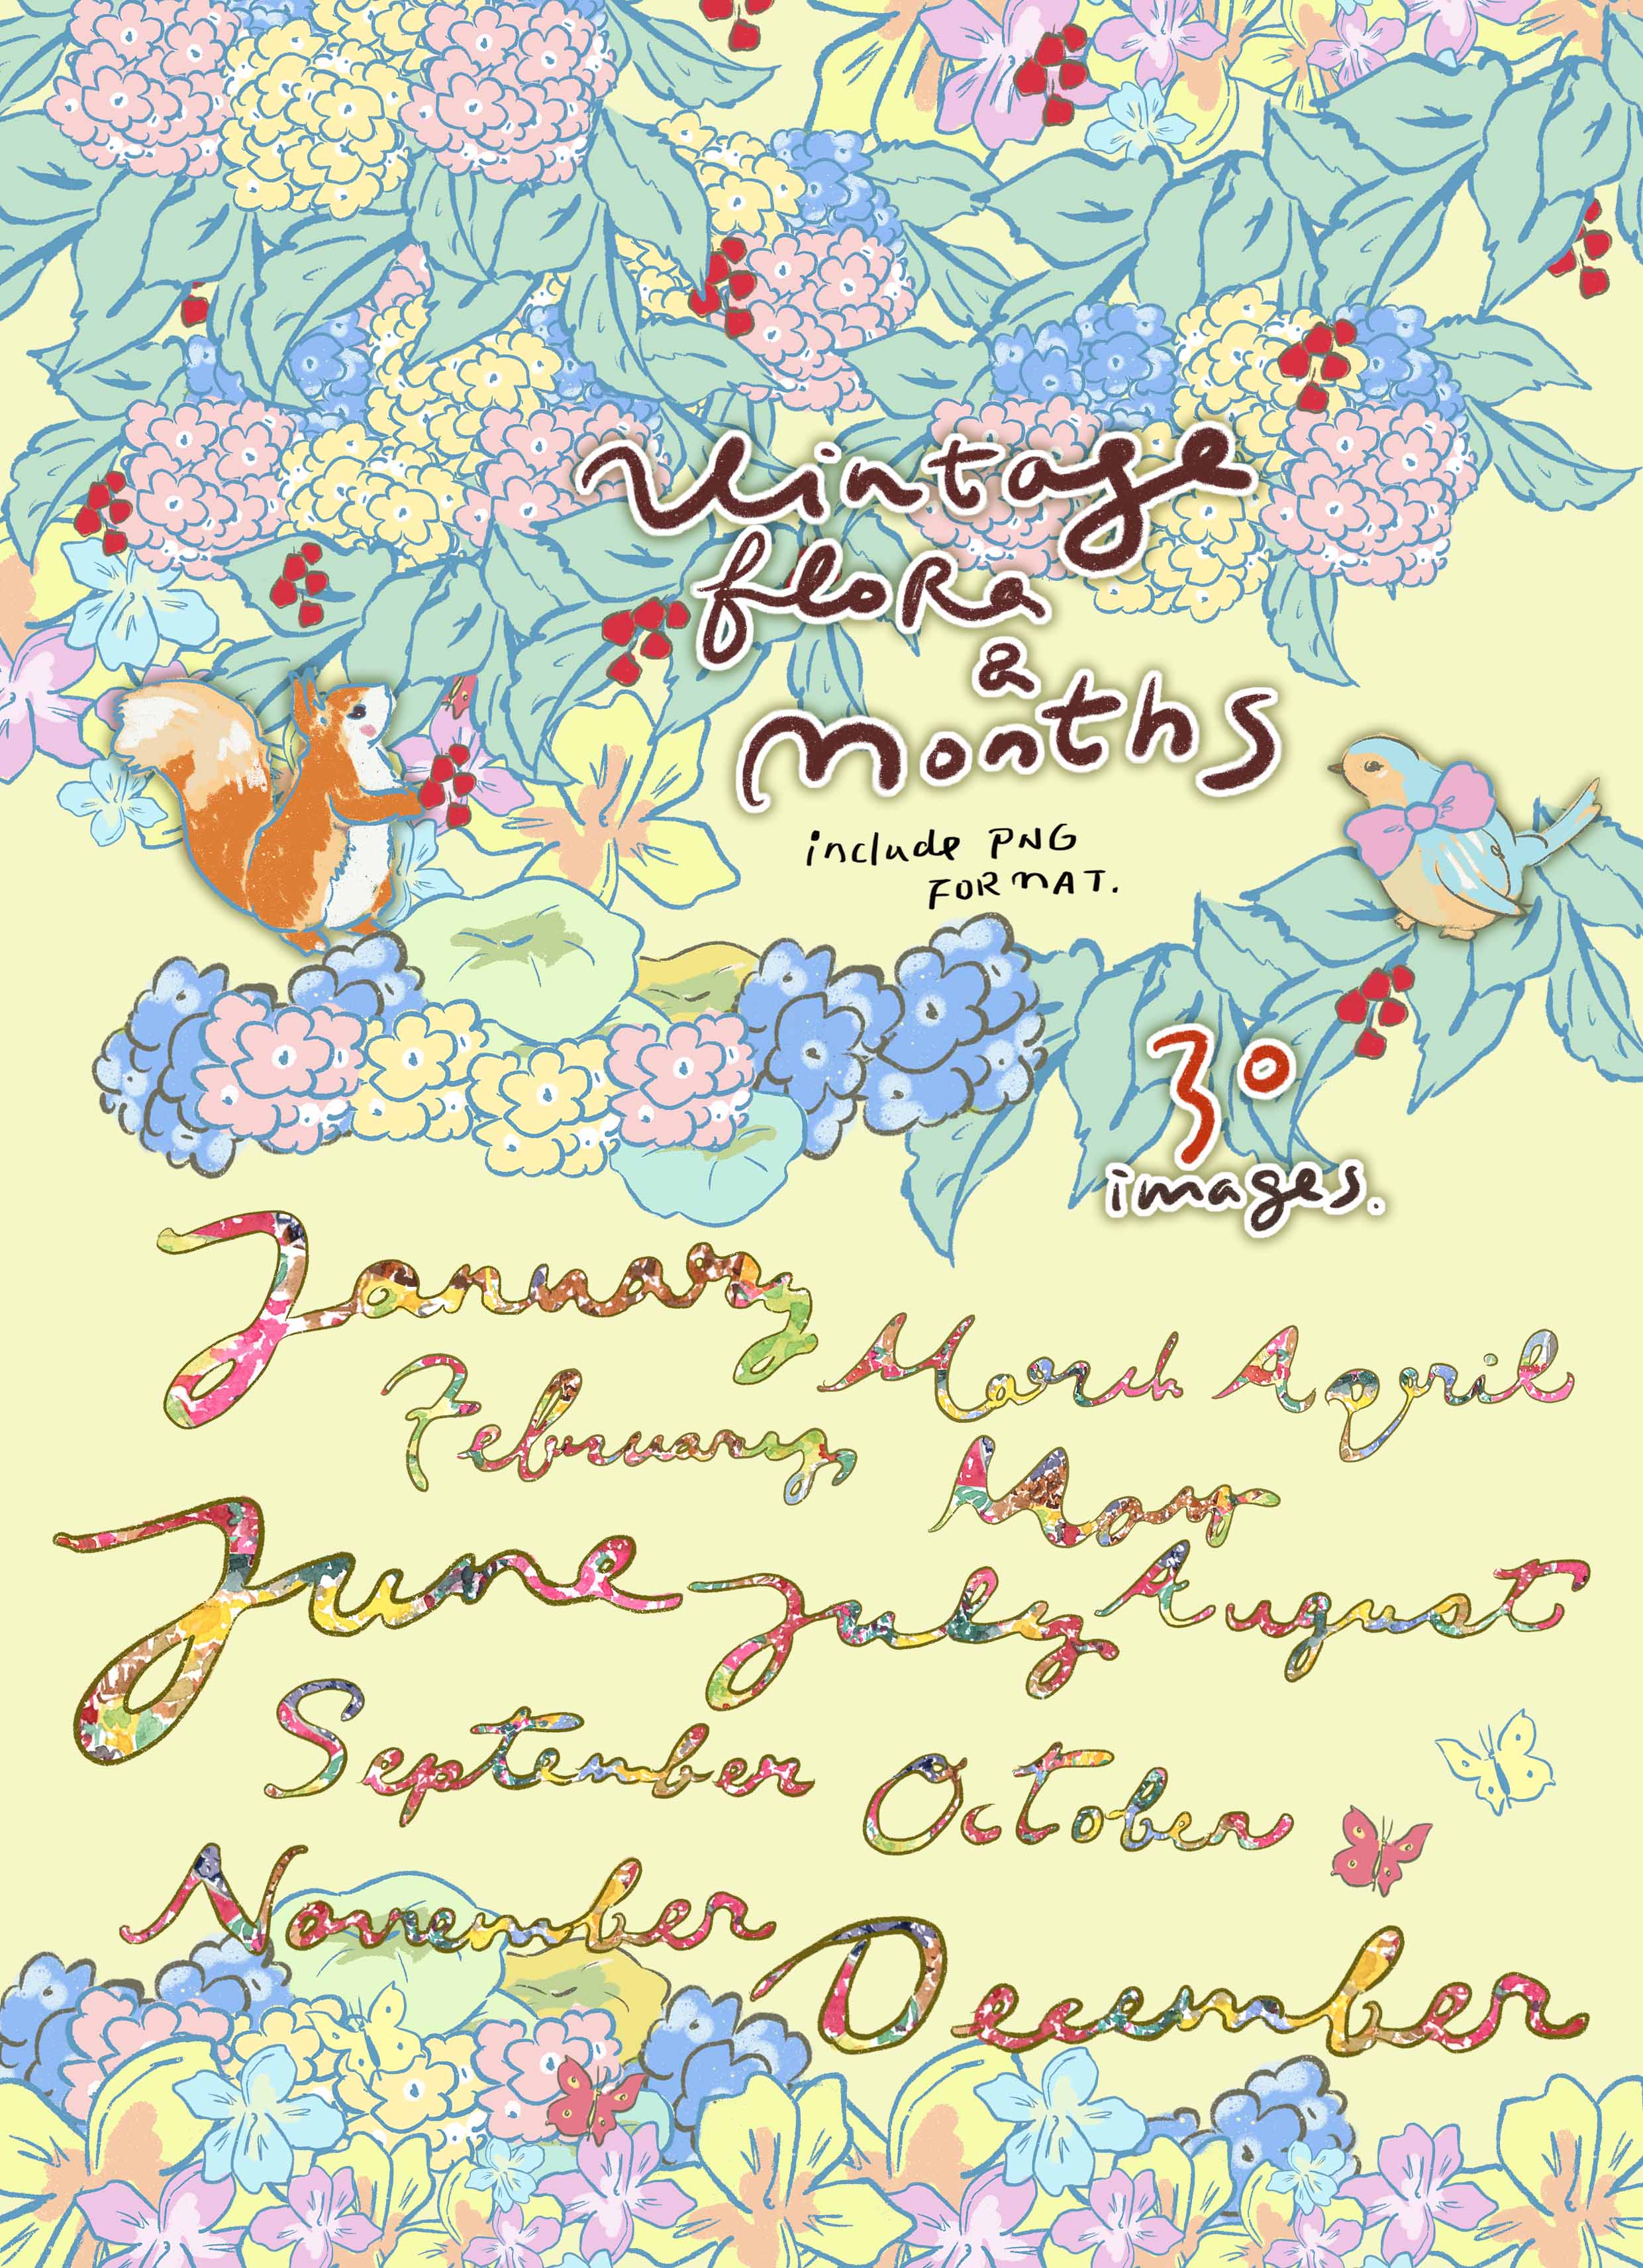 Vintage
floRa
&
months
include PNG
FORMAT.
30
images.
January
March April
February
May
June
July August
September
October
November
December